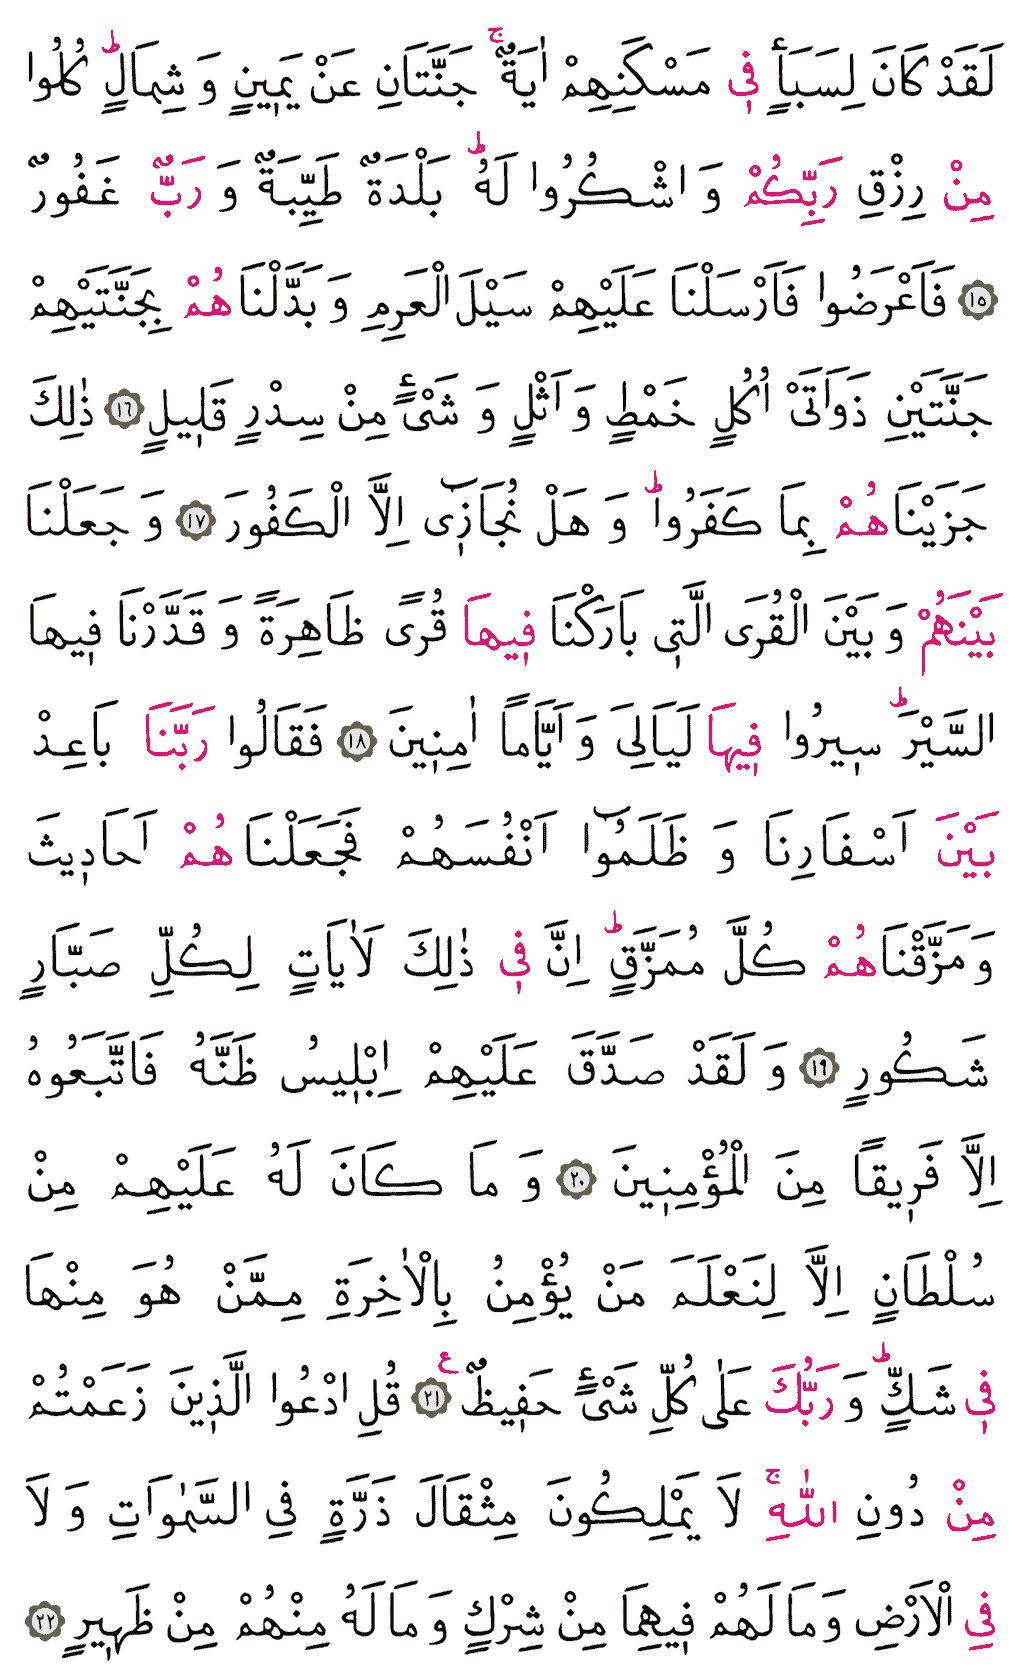 لَقَدْ كَانَ لِسَبَاٍ فٖي مَسْكَنِهِمْ اٰيَةٌۚ جَنَّتَانِ عَنْ يَمٖينٍ وَ شِمَالٍؕ كُلُوا
مِنْ رِزْقِ رَبِّكُمْ وَ اشْكُرُوا لَهُؕ بَلْدَةٌ طَيِّبَةٌ وَ رَبٌّ غَفُورٌ
﴿١٥﴾ فَاَعْرَضُوا فَاَرْسَلْنَا عَلَيْهِمْ سَيْلَ الْعَرِمِ وَ بَدَّلْنَاهُمْ بِجَنَّتَيْهِمْ
جَنَّتَيْنِ ذَوَاتَىْ اُكُلٍ خَمْطٍ وَ اَثْلٍ وَ شَیْءٍ مِنْ سِدْرٍ قَلٖيلٍ ﴿١٦﴾ ذٰلِكَ
جَزَيْنَاهُمْ بِمَا كَفَرُواؕ وَ هَلْ نُجَازٖٓى اِلَّا الْكَفُورَ ﴿١٧﴾ وَ جَعَلْنَا
بَيْنَهُمْ وَ بَيْنَ الْقُرَى الَّتٖى بَارَكْنَا فٖيهَا قُرًى ظَاهِرَةً وَ قَدَّرْنَا فٖيهَا
السَّيْرَؕ سٖيرُوا فٖيهَا لَيَالِىَ وَ اَيَّامًا اٰمِنٖينَ ﴿١٨﴾ فَقَالُوا رَبَّنَا بَاعِدْ
بَيْنَ اَسْفَارِنَا وَ ظَلَمُٓوا اَنْفُسَهُمْ فَجَعَلْنَاهُمْ اَحَادٖيثَ
وَ مَزَّقْنَاهُمْ كُلَّ مُمَزَّقٍؕ اِنَّ فٖي ذٰلِكَ لَاٰيَاتٍ لِكُلِّ صَبَّارٍ
شَكُورٍ ﴿١٩﴾ وَ لَقَدْ صَدَّقَ عَلَيْهِمْ اِبْلٖيسُ ظَنَّهُ فَاتَّبَعُوهُ
اِلَّا فَرٖيقًا مِنَ الْمُؤْمِنٖينَ ﴿٢٠﴾ وَ مَا كَانَ لَهُ عَلَيْهِمْ مِنْ
سُلْطَانٍ اِلَّا لِنَعْلَمَ مَنْ يُؤْمِنُ بِالْاٰخِرَةِ مِمَّنْ هُوَ مِنْهَا
فٖي شَكٍّؕ وَ رَبُّكَ عَلٰى كُلِّ شَیْءٍ حَفٖيظٌ ﴿٢١﴾ ع قُلِ ادْعُوا الَّذٖينَ زَعَمْتُمْ
مِنْ دُونِ اللّٰهِۚ لَا يَمْلِكُونَ مِثْقَالَ ذَرَّةٍ فِي السَّمٰوَاتِ وَ لَا
فِي الْاَرْضِ وَ مَا لَهُمْ فٖيهِمَا مِنْ شِرْكٍ وَ مَا لَهُ مِنْهُمْ مِنْ ظَهٖيرٍ ﴿٢٢﴾